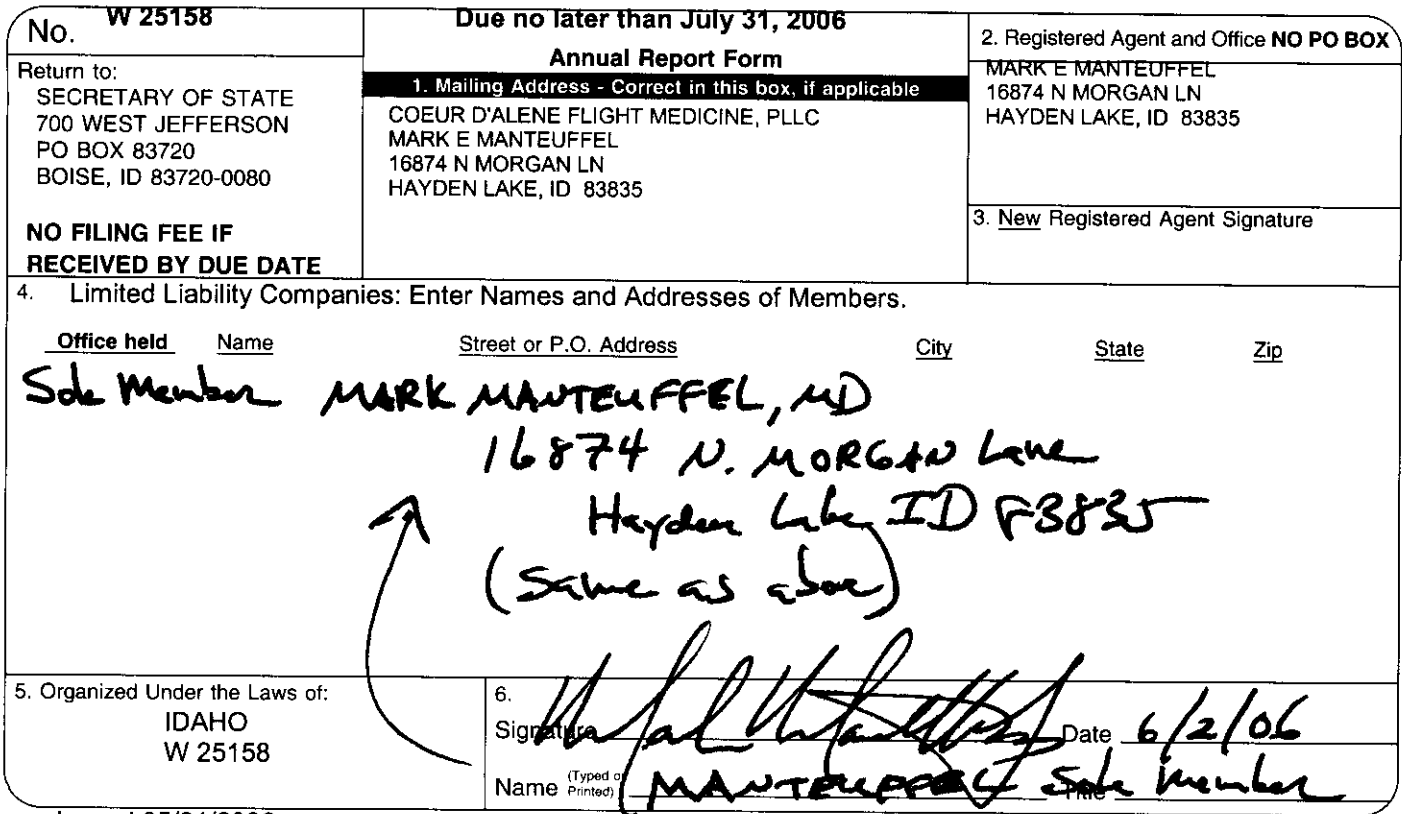 No. W 25158
Return to:
SECRETARY OF STATE
700 WEST JEFFERSON
PO BOX 83720
BOISE, ID 83720-0080
NO FILING FEE IF
RECEIVED BY DUE DATE
Due no later than July 31, 2006
Annual Report Form
1. Mailing Address - Correct in this box, if applicable
COEUR D'ALENE FLIGHT MEDICINE, PLLC
MARK E MANTEUFFEL
16874 N MORGAN LN
HAYDEN LAKE, ID 83835
2. Registered Agent and Office NO PO BOX
MARK E MANTEUFFEL
16874 N MORGAN LN
HAYDEN LAKE, ID 83835
3. New Registered Agent Signature
4. Limited Liability Companies: Enter Names and Addresses of Members.
Office held Name Street or P.O. Address City State Zip
Sole Member MARK MANTEUFFEL, MD
16874 N. MORGAN Lane
Hayden Lake, ID 83835
(Same as above)
5. Organized Under the Laws of:
IDAHO
W 25158
6.
Signature Date 6/2/06
Name (Typed or Printed) MANTEUFFEL Title Sole Member